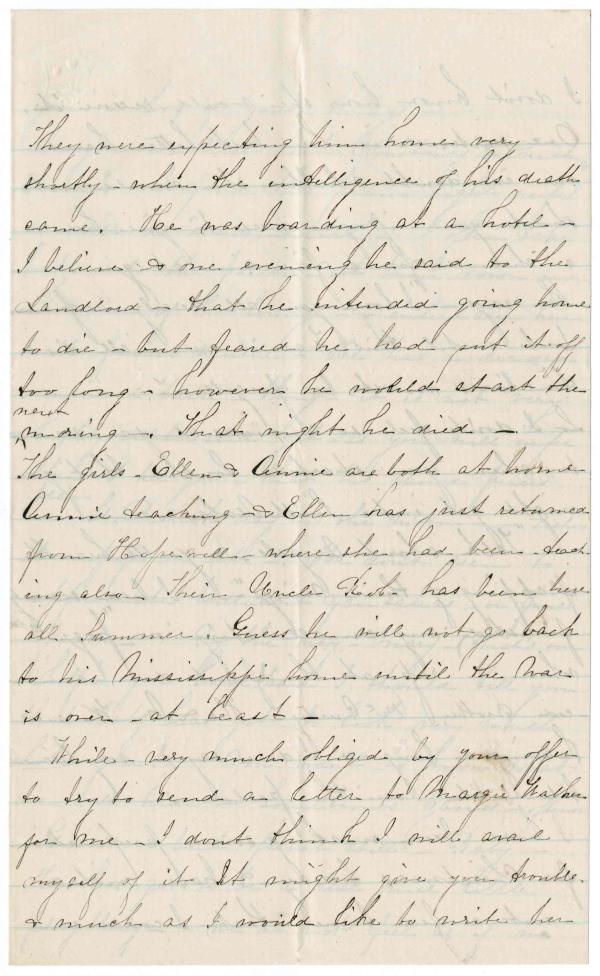 They were expecting him home very
shortly - when the intelligence of his death
came. He was boarding at a hotel -
I believe & one evening he said to the
Landlord - that he intended going home
to die - but feared he had put it off
too long - however he would start the
next
morning -. That night he died -
The girls - Ellen & Annie are both at home
Annie teaching - & Ellen has just returned
from Hopewell - where she had been - teach
ing also - Their Uncle has been here
all Summer. Guess he will not go back
to his Mississippi home until the War
is over - at least -
While - very much obliged by your offer
to try to send a letter to Margie Walker
for me - I dont think I will avail
myself of it It might give you trouble.
& much as I would like to write her